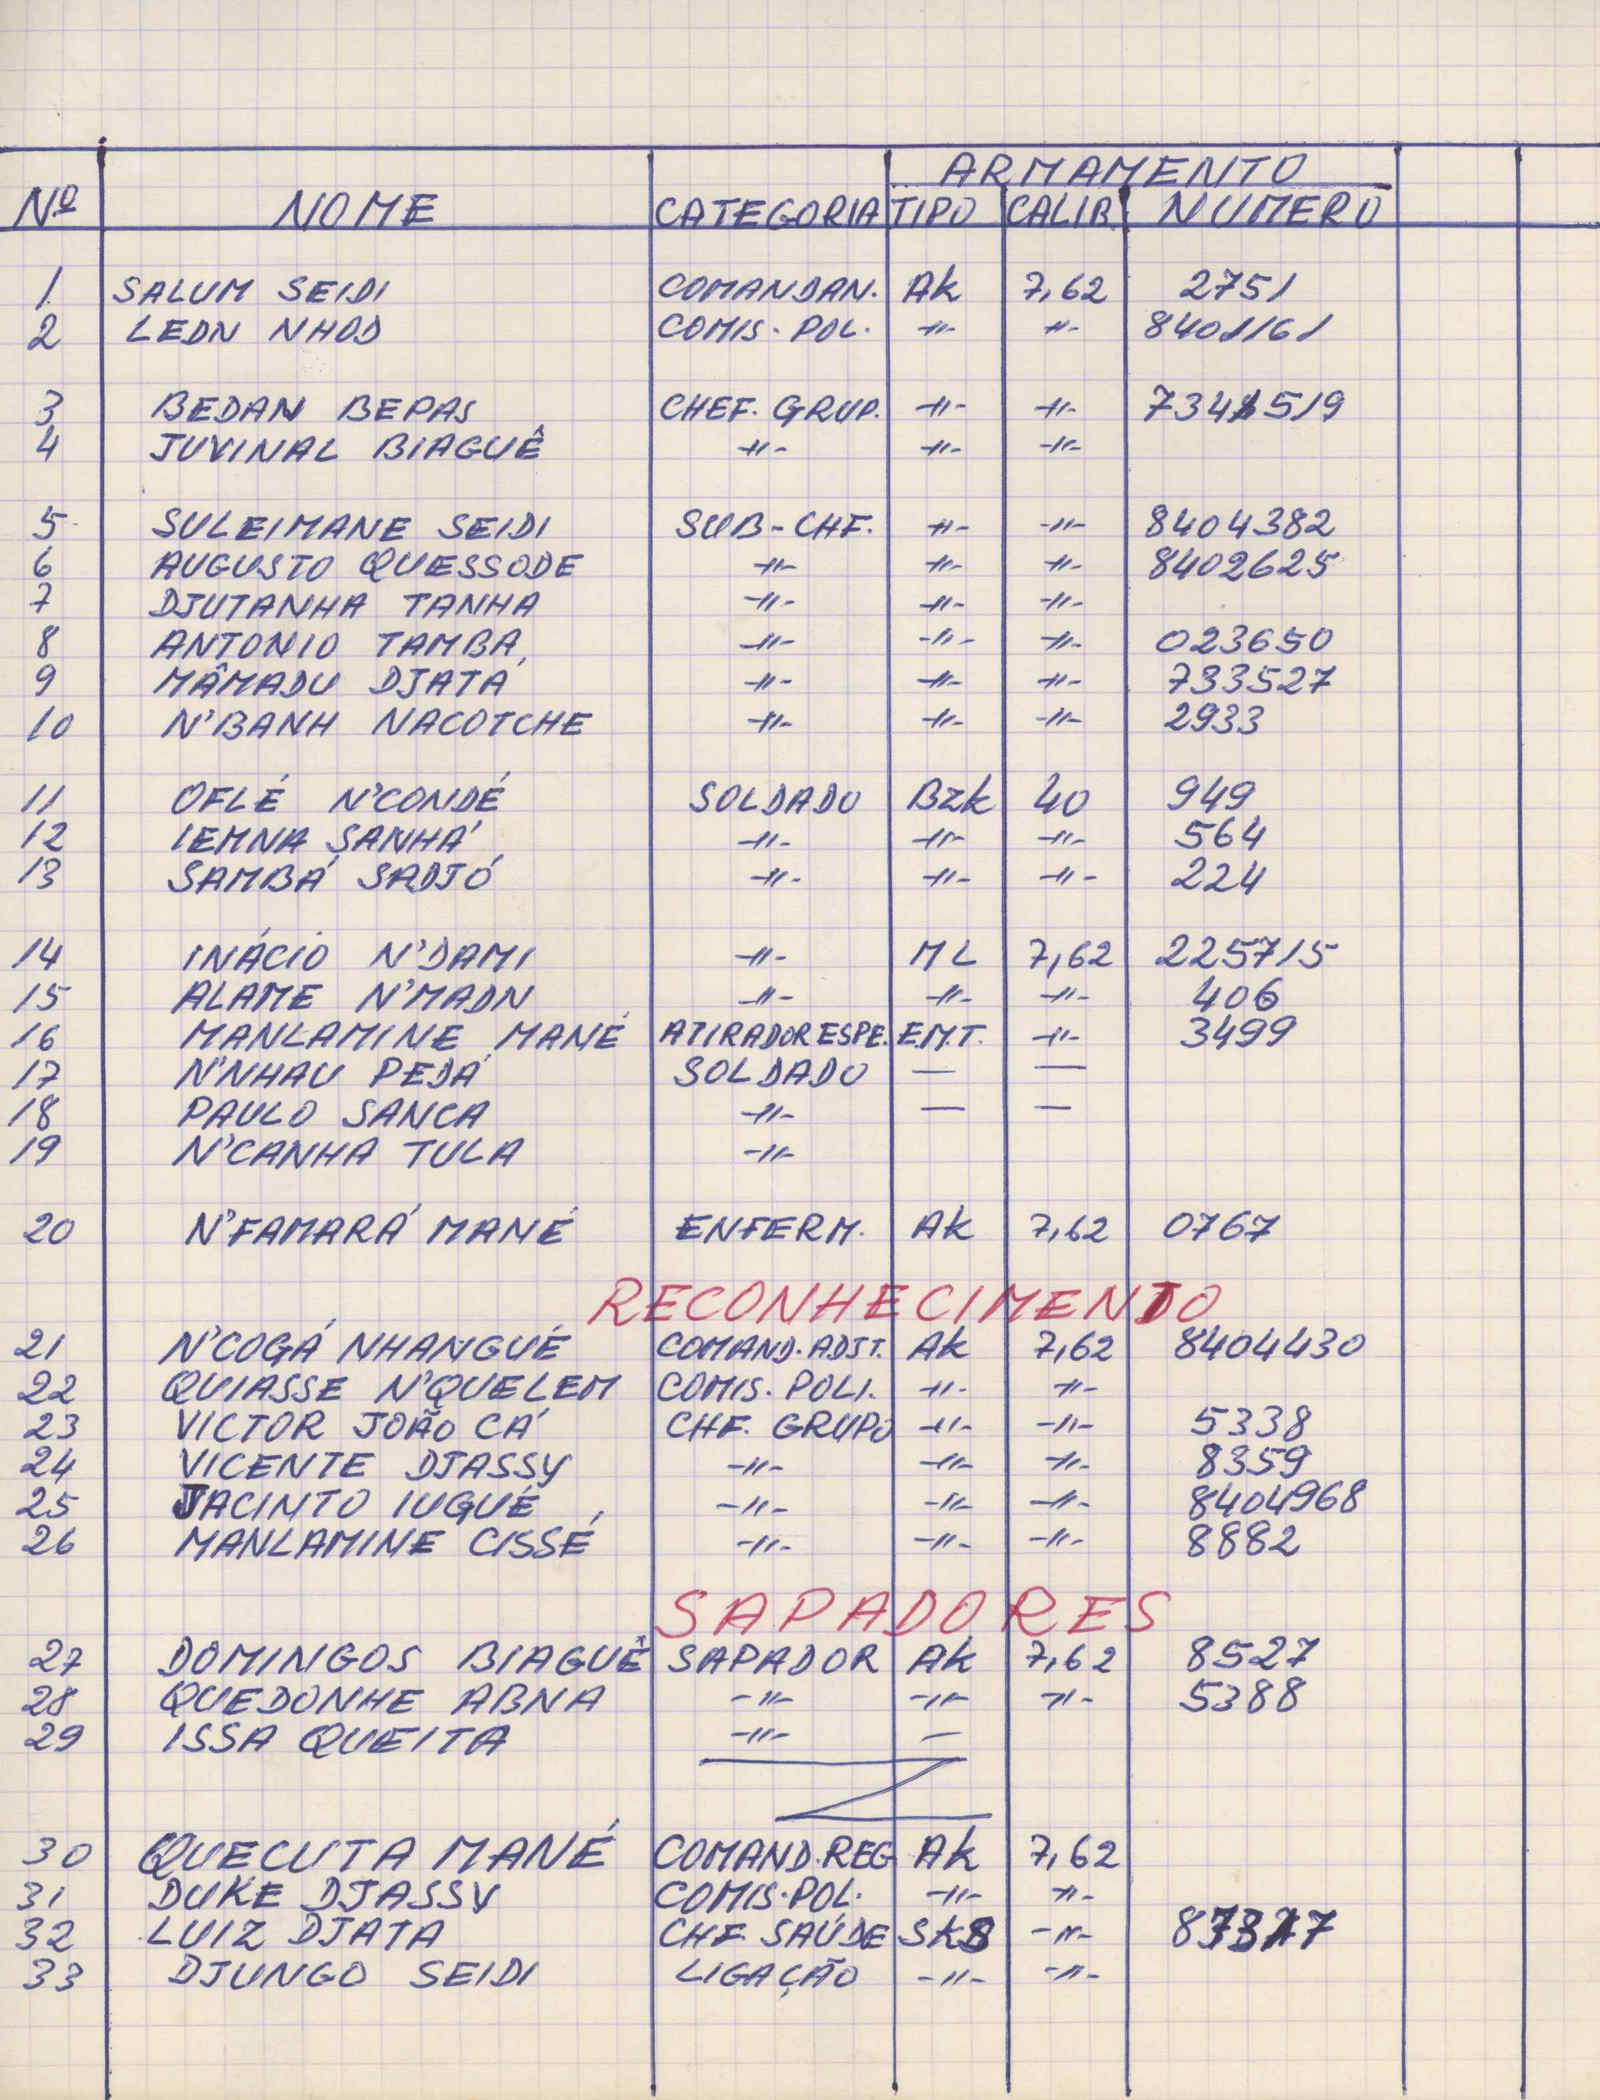 ARMAMENTO
Nº NOME CATEGORIA TIPO CALIB. NUMERO
1 SALUM SEIDI COMANDAN. AK 7,62 2751
2 LEON NHOD COMIS. POL. -〃- -〃- 8401161
3 BEDAN BEPAS CHEF. GRUP. -〃- -〃- 7341519
4 JUVINAL BIAGUÊ -〃- -〃- -〃-
5 SULEIMANE SEIDI SUB-CHF. -〃- -〃- 8404382
6 AUGUSTO QUESSODE -〃- -〃- -〃- 8402625
7 DJUTANHA TANHA -〃- -〃- -〃-
8 ANTONIO TAMBA -〃- -〃- -〃- 023650
9 MÂMADU DJATÁ -〃- -〃- -〃- 733527
10 N'BANH NACOTCHE -〃- -〃- -〃- 2933
11 OFLÉ N'CONDÉ SOLDADO BZK 40 949
12 IEMNA SANHÁ -〃- -〃- -〃- 564
13 SAMBÁ SADJÓ -〃- -〃- -〃- 224
14 INÁCIO N'DAMI -〃- ML 7,62 225715
15 ALAME N'MADN -〃- -〃- -〃- 406
16 MANLAMINE MANÉ ATIRADOR ESPE. E.M.T. -〃- 3499
17 N'NHAU PEDÁ SOLDADO — —
18 PAULO SANCA -〃- — —
19 N'CANHA TULA -〃-
20 N'FAMARÁ MANÉ ENFERM. AK 7,62 0767
RECONHECIMENTO
21 N'COGÁ NHANGUÉ COMAND. ADJT. AK 7,62 8404430
22 QUIASSE N'QUELEM COMIS. POLI. -〃- -〃-
23 VICTOR JOÃO CÁ CHF. GRUPO -〃- -〃- 5338
24 VICENTE DJASSY -〃- -〃- -〃- 8359
25 JACINTO IUGUÉ -〃- -〃- -〃- 8404968
26 MANLAMINE CISSÉ -〃- -〃- -〃- 8882
SAPADORES
27 DOMINGOS BIAGUÊ SAPADOR AK 7,62 8527
28 QUEDONHE ABNA -〃- -〃- -〃- 5388
29 ISSA QUEITA -〃- —
30 QUECUTA MANÉ COMAND. REG AK 7,62
31 DUKE DJASSY COMIS. POL. -〃- -〃-
32 LUIZ DJATA CHF. SAÚDE SKS -〃-
33 DJUNGO SEIDI LIGAÇÃO -〃- -〃-